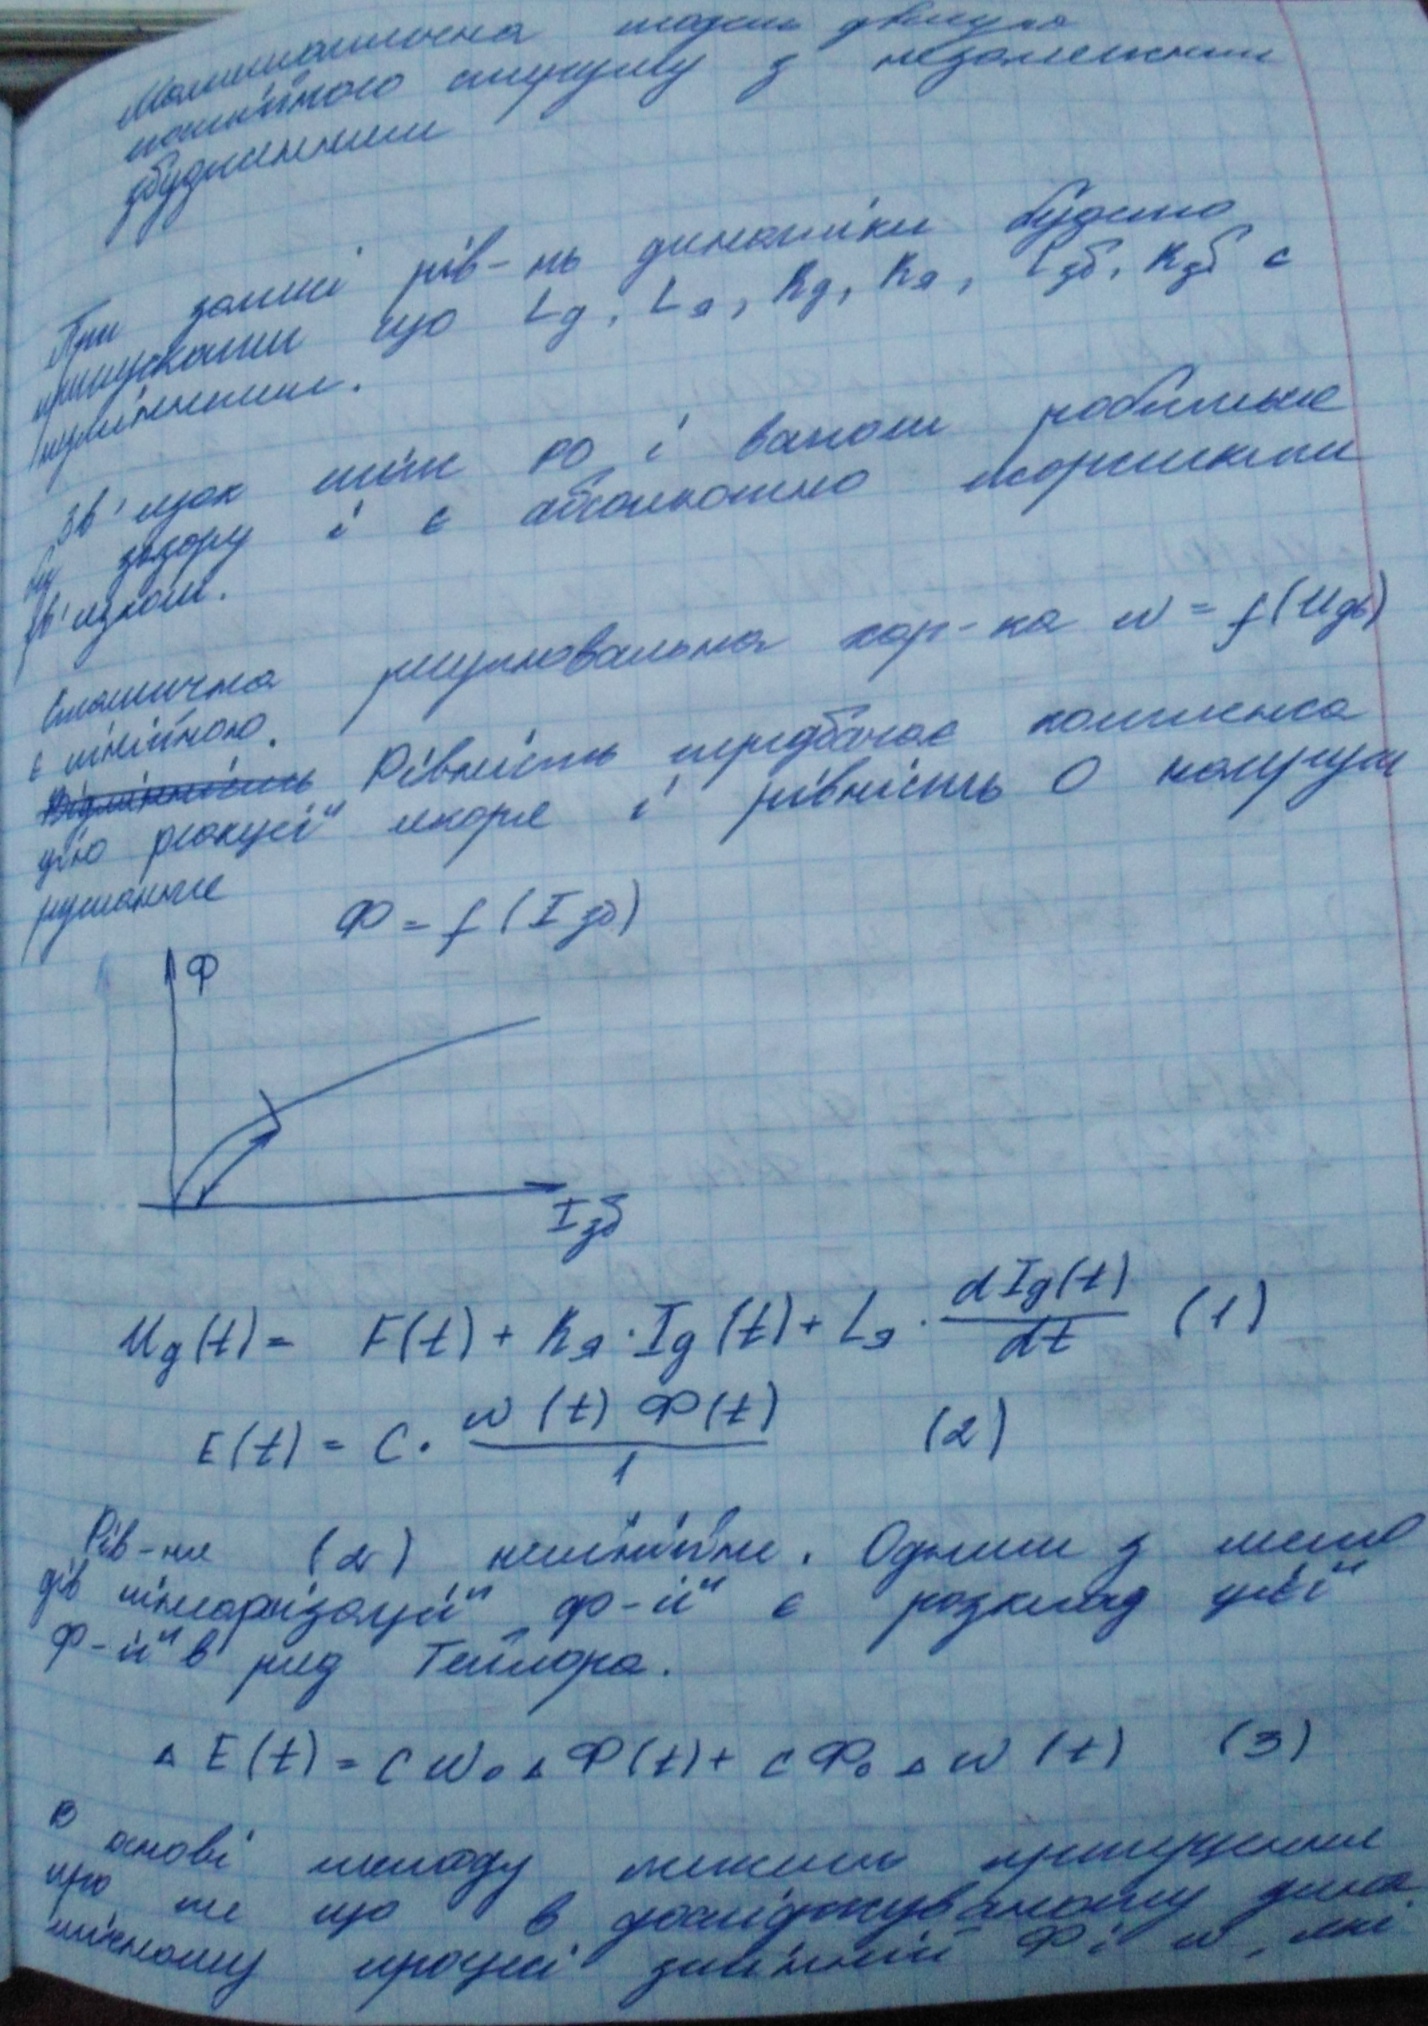 Математична модель двигуна
постійного струму з незалежним
збудженням
При записі рів-нь динаміки будемо
припускати що Lд, Lя, Rд, Rя, Lзб, Rзб є
незмінними.
Зв'язок між РО і валом робиться
без зазору і є абсолютно жорстким
зв'язком.
Статична регулювальна хар-ка w = f(Uдв)
є лінійною.
Рівність передбачає компенса
цію реакції якоря і рівність 0 напруги
рушання
Ф = f(Iзб)
Ф
Iзб
Uд(t) = E(t) + Rя·Iд(t) + Lя·dIд(t)/dt (1)
E(t) = C·w(t) Ф(t)/1 (2)
Рів-ня (2) нелінійне. Одним з мето
дів лінеаризації ф-ії є розклад цієї
ф-ії в ряд Тейлора.
△E(t) = C w₀ △Ф(t) + C Ф₀ △w(t) (3)
В основі методу лежить припущення
про те що в досліджуваному дина
мічному процесі змінній Ф і w, які